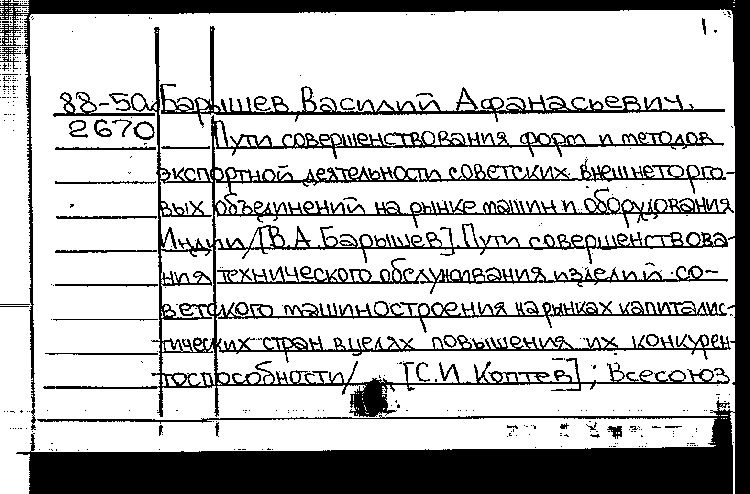 1.
88-5a Барышев, Василий Афанасьевич.
2670 Пути совершенствования форм и методов
экспортной деятельности советских внешнеторго-
вых объединений на рынке машин и оборудования
Индии/[В.А.Барышев]. Пути совершенствова-
ния технического обслуживания изделий со-
ветского машиностроения на рынках капиталис-
тических стран в целях повышения их конкурен-
тоспособности/ [С.И. Коптев]; Всесоюз.